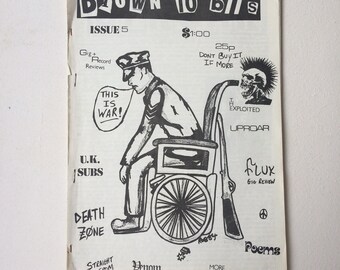 BLOWN TO BITS
ISSUE 5
$1:00
25p
DON'T BUY IT
IF MORE
Gig + Record
Reviews
THIS
IS
WAR!
EXPLOITED
UPROAR
U.K.
SUBS
FLUX
GIG REVIEW
DEATH
ZONE
Poems
STRAIGHT
Venom
MORE